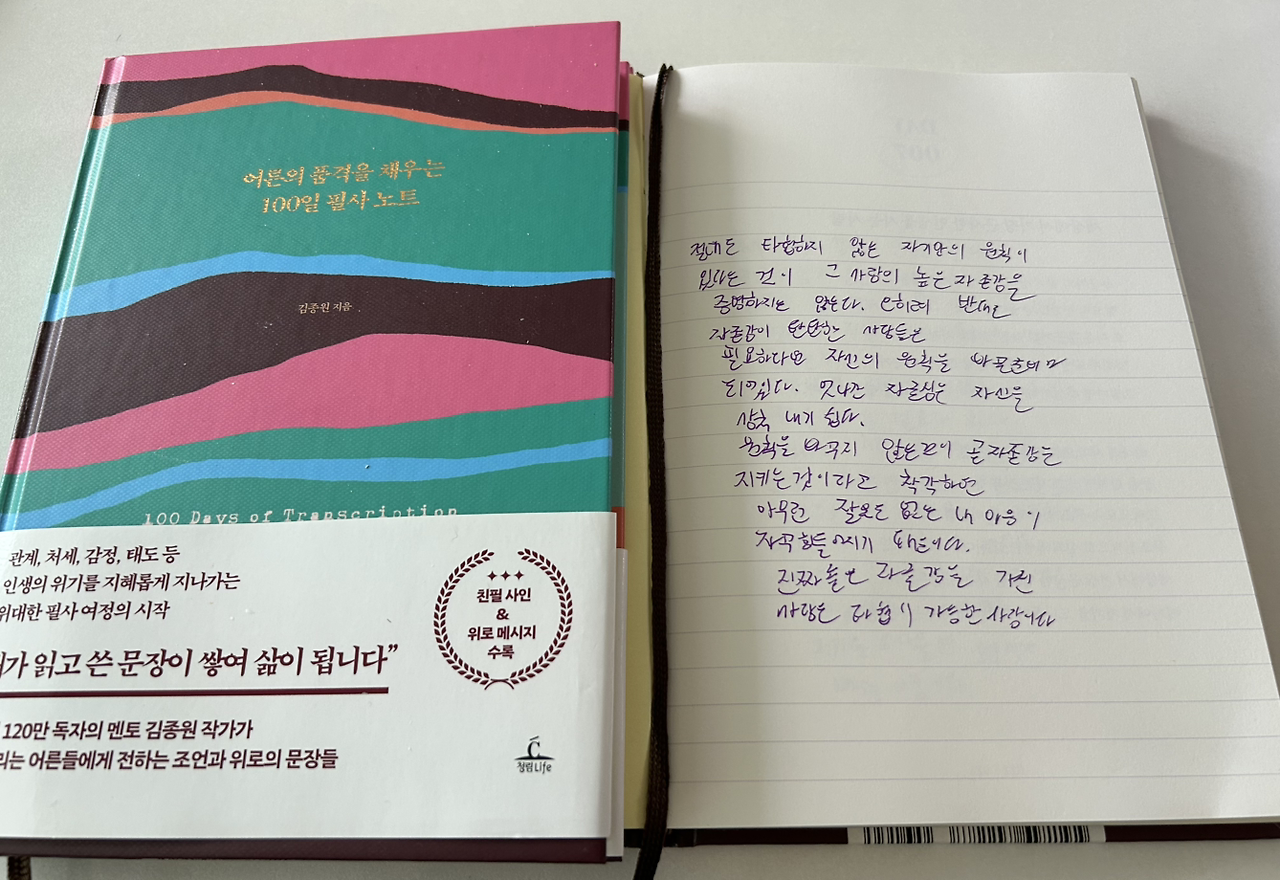 어른의 품격을 채우는
100일 필사 노트
김종원 지음
100 Days of Transcription
관계, 처세, 감정, 태도 등
인생의 위기를 지혜롭게 지나가는
위대한 필사 여정의 시작
가 읽고 쓴 문장이 쌓여 삶이 됩니다”
120만 독자의 멘토 김종원 작가가
어른들에게 전하는 조언과 위로의 문장들
친필 사인
&
위로 메시지
수록
청림Life
절대도 타협하지 않는 자기만의 원칙이
있다는 것이 그 사람의 높은 자존감을
증명하지는 않는다. 오히려 반대로
자존감이 탄탄한 사람들은
필요하다면 자신의 원칙을 바꿀준비가
되어있다. 못난 자존심은 자신을
상처 내기 쉽다.
원칙을 바꾸지 않는것이 곧 자존감을
지키는 것이라고 착각하면
아무런 잘못도 없는 내 마음이
자꾸 힘들어지기 때문이다.
진짜 높은 자존감을 가진
사람은 타협이 가능한 사람이다